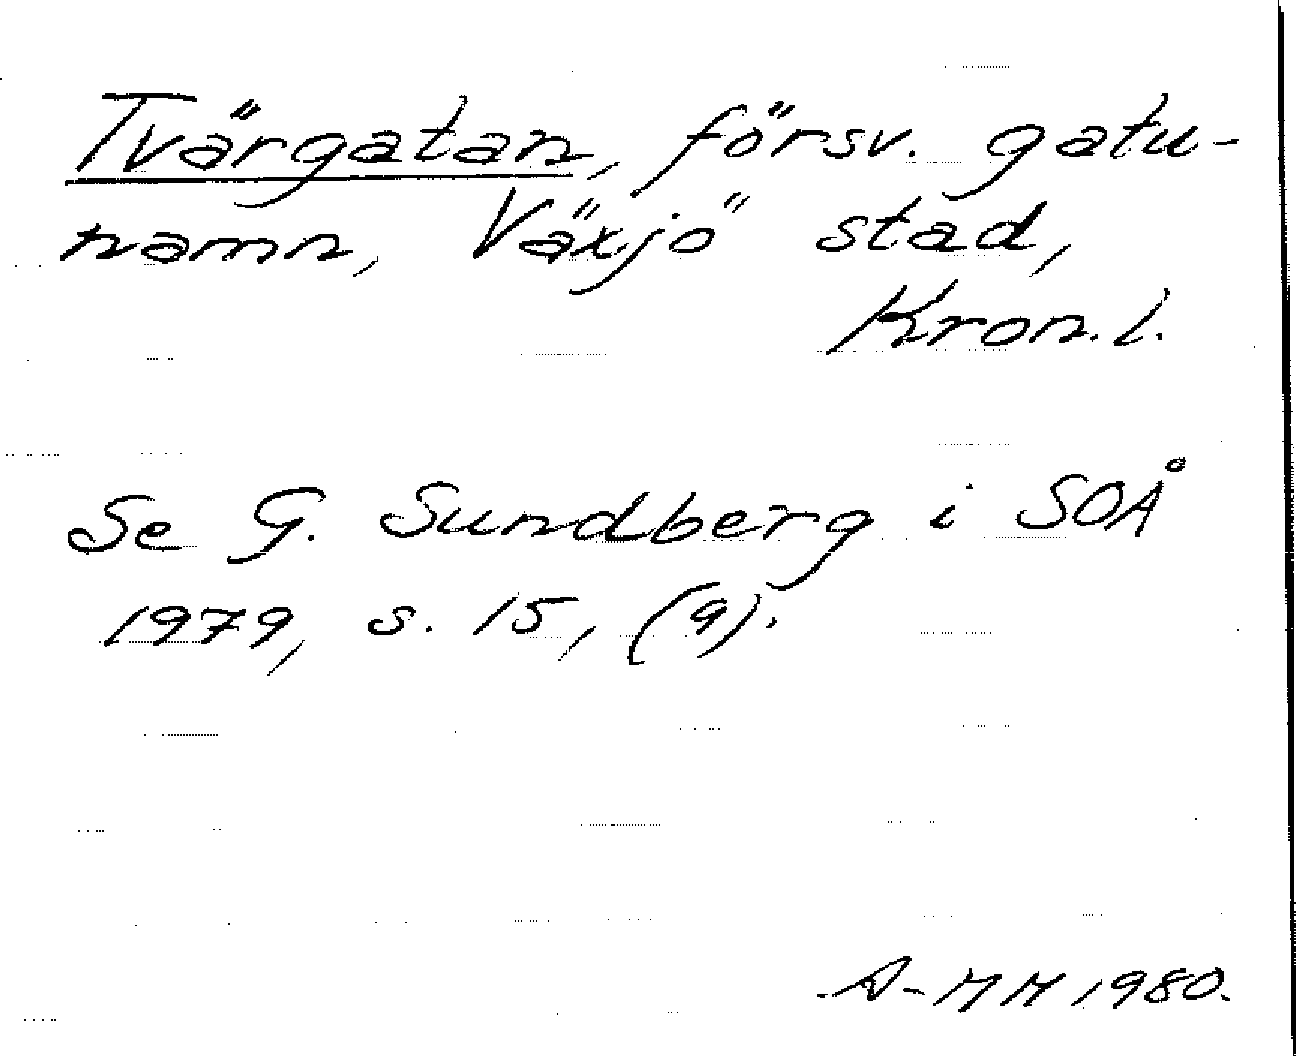 Tvärgatan, försv. gatu-
namn, Växjö stad,
Kron. l.
Se G. Sundberg i SOÅ
1979, s. 15, (9).
A-MM 1980.